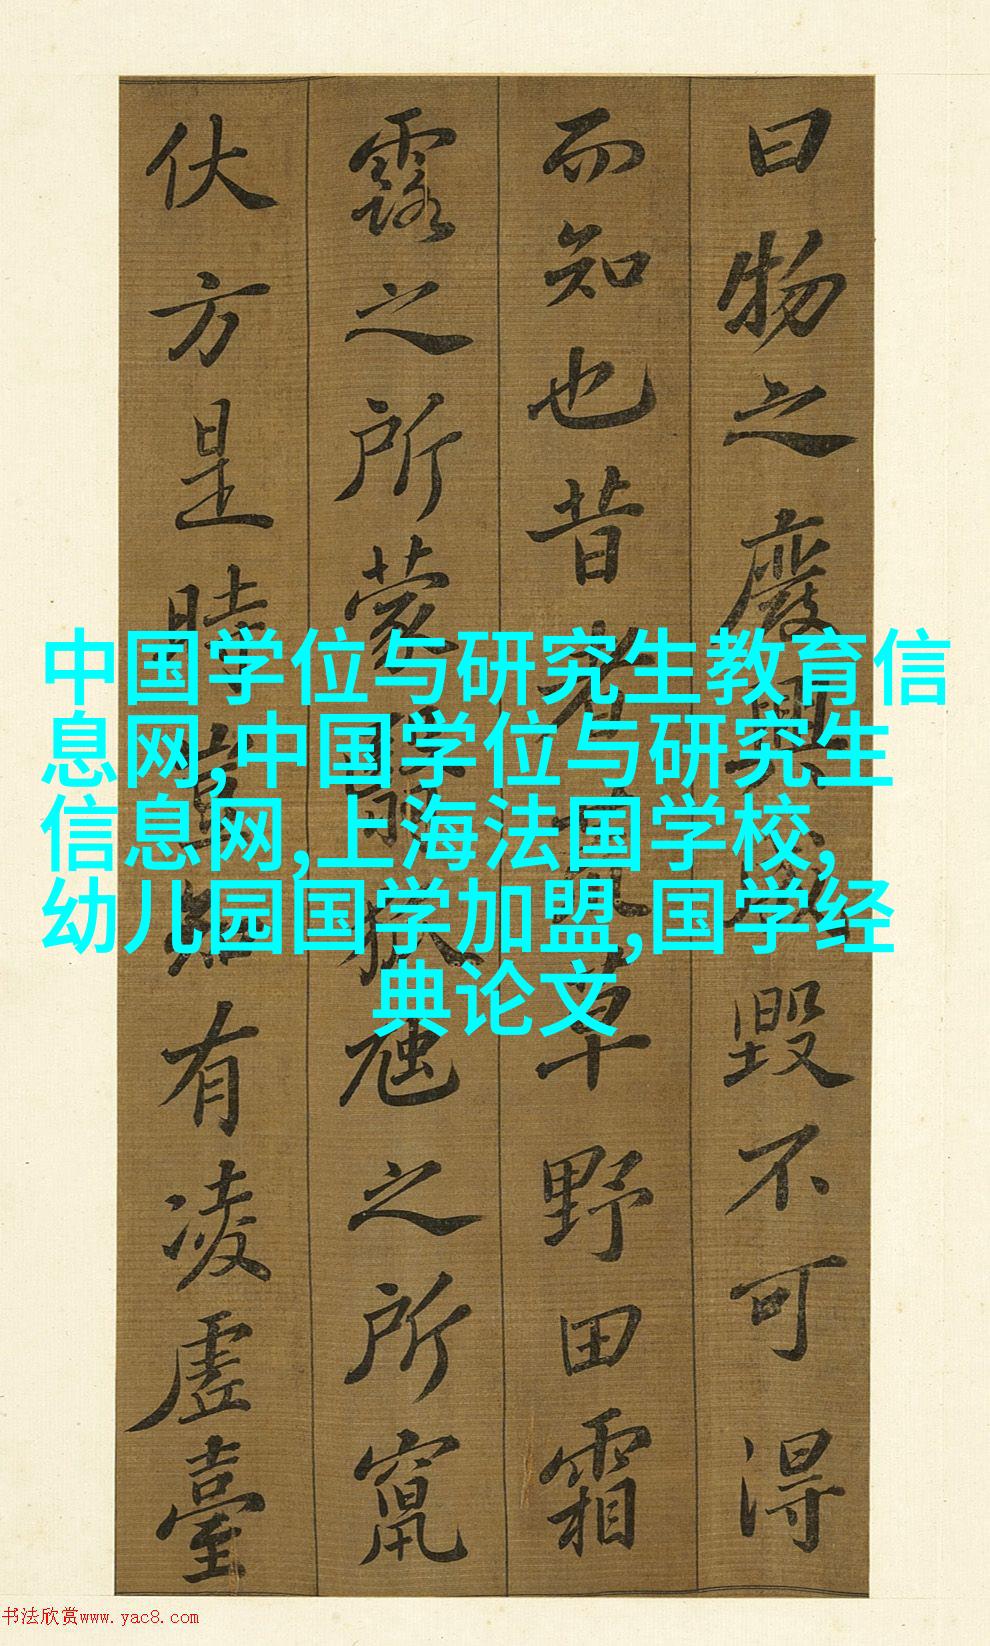 曰物之廢興成毀不可得
而知也昔者荒草野田霜
露之所蒙翳狐虺之所竄
伏方是時豈知有凌虛臺
中国学位与研究生教育信
息网,中国学位与研究生
信息网,上海法国学校,
幼儿园国学加盟,国学经
典论文
书法欣赏www.yac8.com